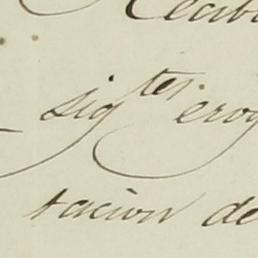 Recib
sig.tes erog
tacion de